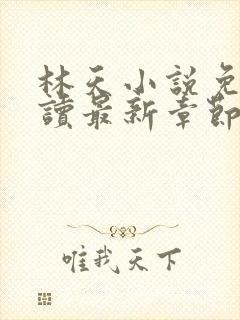 林天小說免
讀最新章節
唯我天下